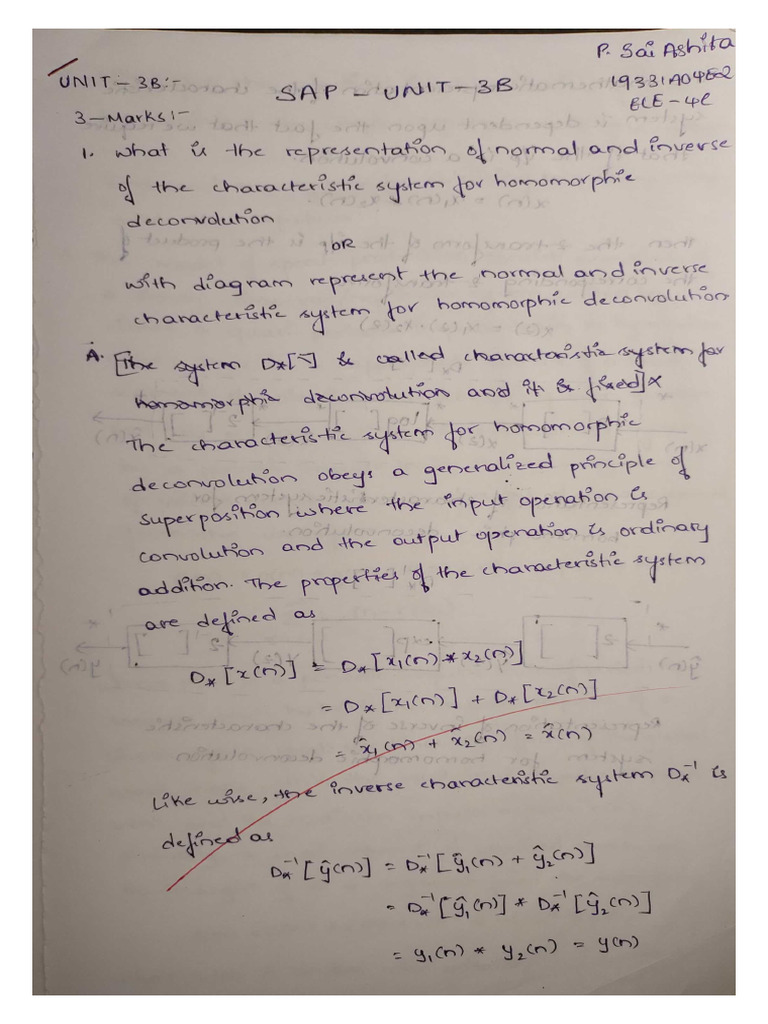 P. Sai Ashita
UNIT - 3B:-
SAP - UNIT - 3B
19331A04E2
ECE-4C
3-Marks:-
1. What is the representation of normal and inverse
of the characteristic system for homomorphic
deconvolution
OR
with diagram represent the normal and inverse
characteristic system for homomorphic deconvolution
A. [The system D*[ ] is called characteristic system for
homomorphic deconvolution and it is fixed]x
The characteristic system for homomorphic
deconvolution obeys a generalized principle of
superposition where the input operation is
convolution and the output operation is ordinary
addition. The properties of the characteristic system
are defined as
D*[x(n)] = D*[x1(n) * x2(n)]
= D*[x1(n)] + D*[x2(n)]
= x̂1(n) + x̂2(n) = x̂(n)
Like wise, the inverse characteristic system D*⁻¹ is
defined as
D*⁻¹[ŷ(n)] = D*⁻¹[ŷ1(n) + ŷ2(n)]
= D*⁻¹[ŷ1(n)] * D*⁻¹[ŷ2(n)]
= y1(n) * y2(n) = y(n)